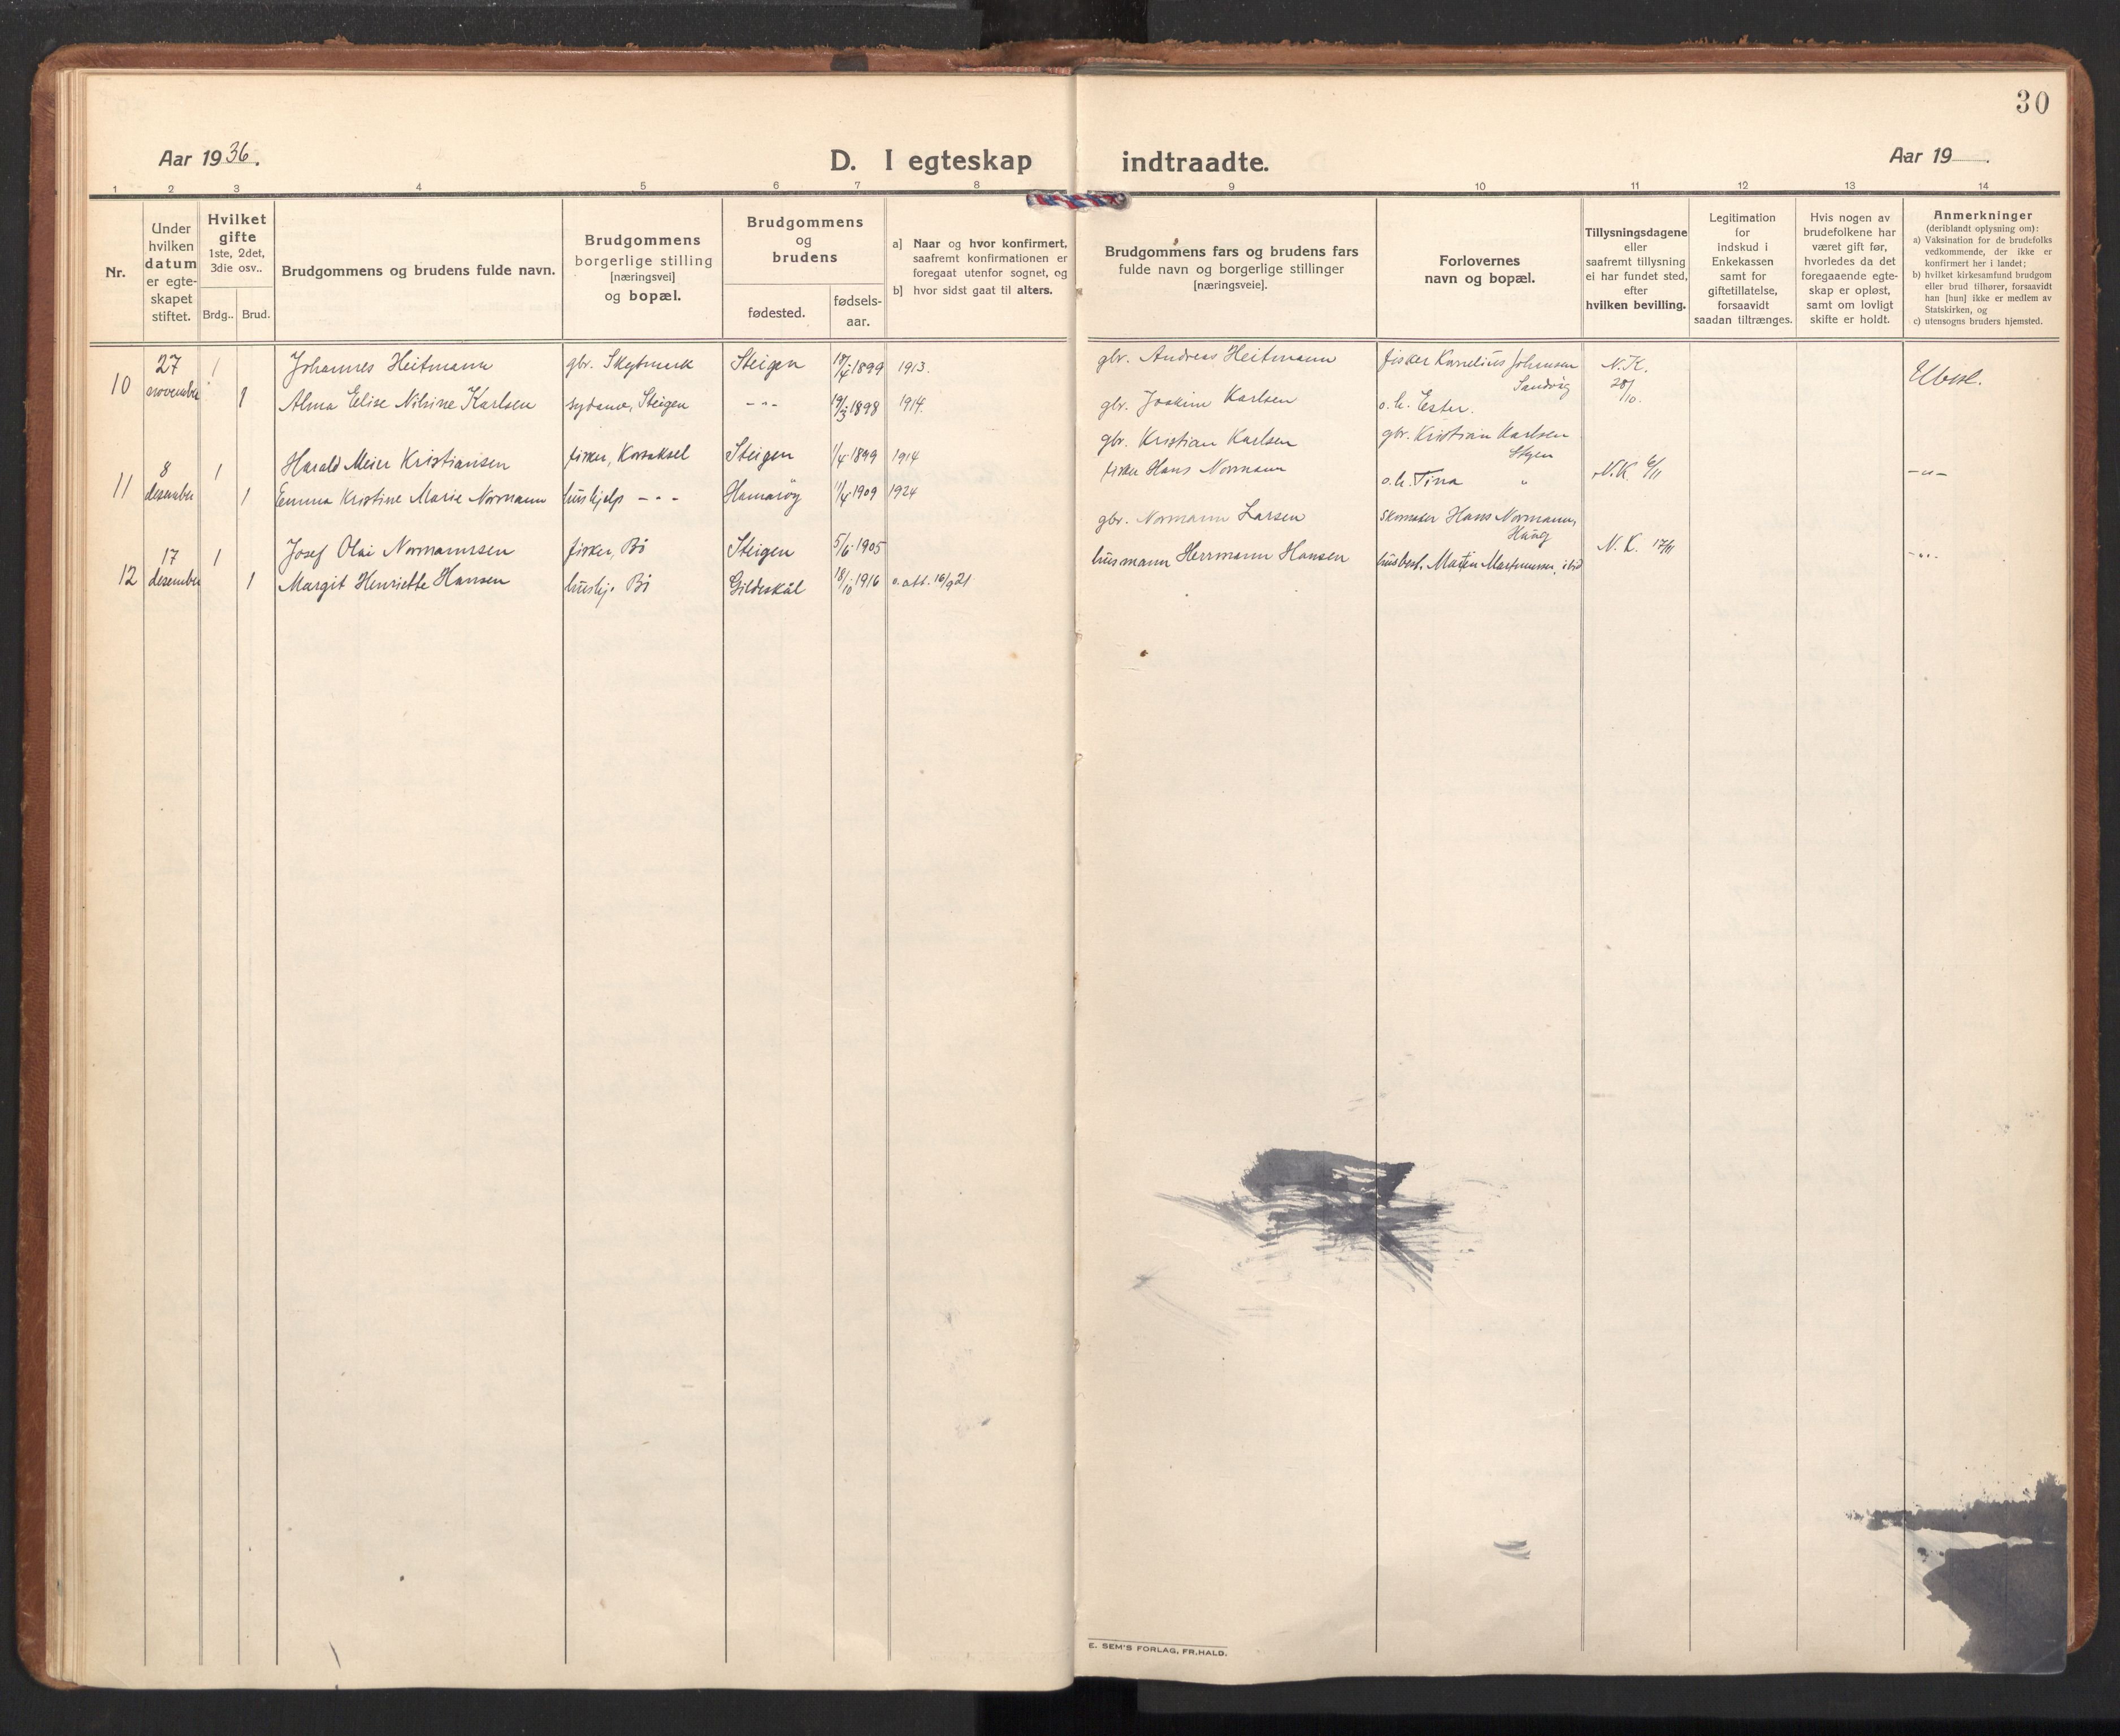 30
Aar 1936.
D. I egteskap indtraadte.
Aar 19
1 2 3 4 5 6 7 8 9 10 11 12 13 14
Nr.
Under
hvilken
datum
er egte-
skapet
stiftet.
Hvilket
gifte
1ste, 2det,
3die osv..
Brdg.. Brud.
Brudgommens og brudens fulde navn.
Brudgommens
borgerlige stilling
[næringsvei]
og bopæl.
Brudgommens
og
brudens
fødested.
fødsels-
aar.
a] Naar og hvor konfirmert,
saafremt konfirmationen er
foregaat utenfor sognet, og
b] hvor sidst gaat til alters.
Brudgommens fars og brudens fars
fulde navn og borgerlige stillinger
[næringsveie].
Forlovernes
navn og bopæl.
Tillysningsdagene
eller
saafremt tillysning
ei har fundet sted,
efter
hvilken bevilling.
Legitimation
for
indskud i
Enkekassen
samt for
giftetillatelse,
forsaavidt
saadan tiltrænges.
Hvis nogen av
brudefolkene har
været gift før,
hvorledes da det
foregaaende egte-
skap er opløst,
samt om lovligt
skifte er holdt.
Anmerkninger
(deriblandt oplysning om):
a) Vaksination for de brudefolks
vedkommende, der ikke er
konfirmert her i landet;
b) hvilket kirkesamfund brudgom
eller brud tilhører, forsaavidt
han [hun] ikke er medlem av
Statskirken, og
c) utensogns bruders hjemsted.
10 27 november 1 Johannes Heitmann gbr. Skytmark Steigen 1899 1913. gbr. Andreas Heitmann fisker Kornelius Johansen Sandvig N.K. 28/10.
1 Alma Elise Nilsine Karlsen sydame, Steigen -"- 19/3 1898 1914. gbr. Joakim Karlsen o.h. Ester.
11 8 desember 1 Harald Meier Kristiansen fisker, Korsaksel Steigen 1/4 1899 1914 gbr. Kristian Karlsen gbr. Kristian Karlsen N.K. 6/11 -"-
1 Emma Kristine Marie Normann hushjelp -"- Hamarøy 11/4 1909 1924 fisker Hans Normann o.h. Tina "
12 17 desember 1 Josef Olai Normannsen fisker, Bö Steigen 5/6 1905 gbr. Normann Larsen skomaker Hans Normann, Haug N.K. 17/11 -"-
1 Margit Henriette Hansen hushj. Bö Gildeskål 18/10 1916 o. att. 16/9 21 husmann Herrmann Hansen husbest. Martin Martinussen, ibid
E. SEM'S FORLAG, FR.HALD.